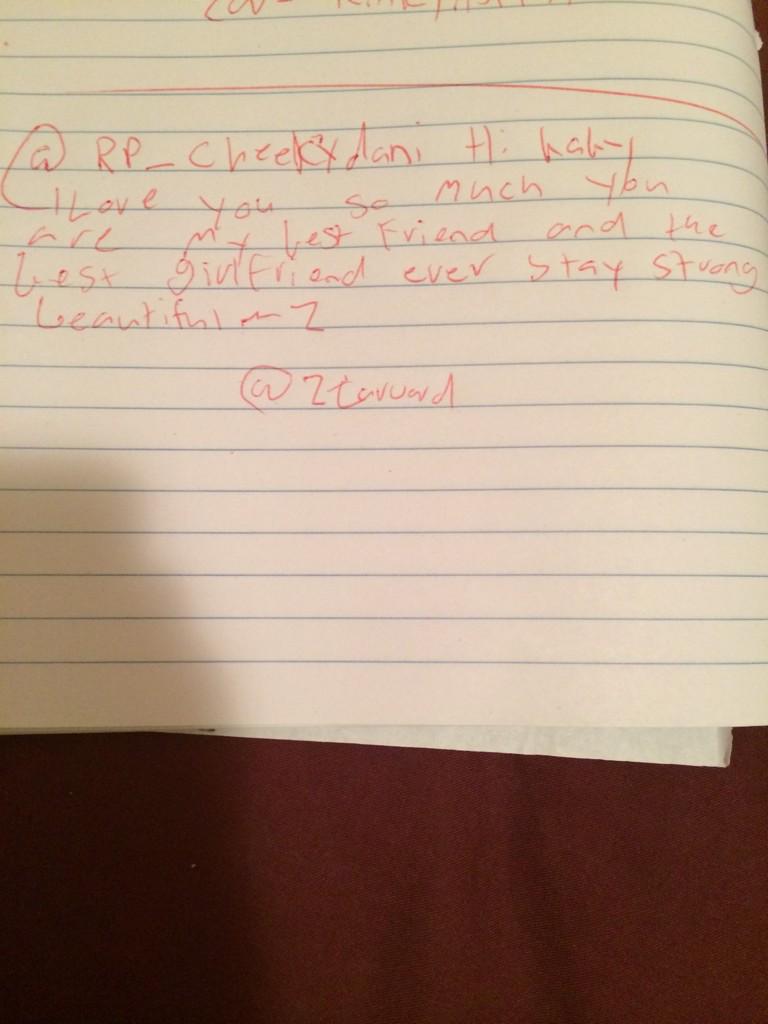 @RP_Cheekydani Hi baby
I Love you so much you
are my best friend and the
best girlfriend ever stay strong
beautiful ~ Z